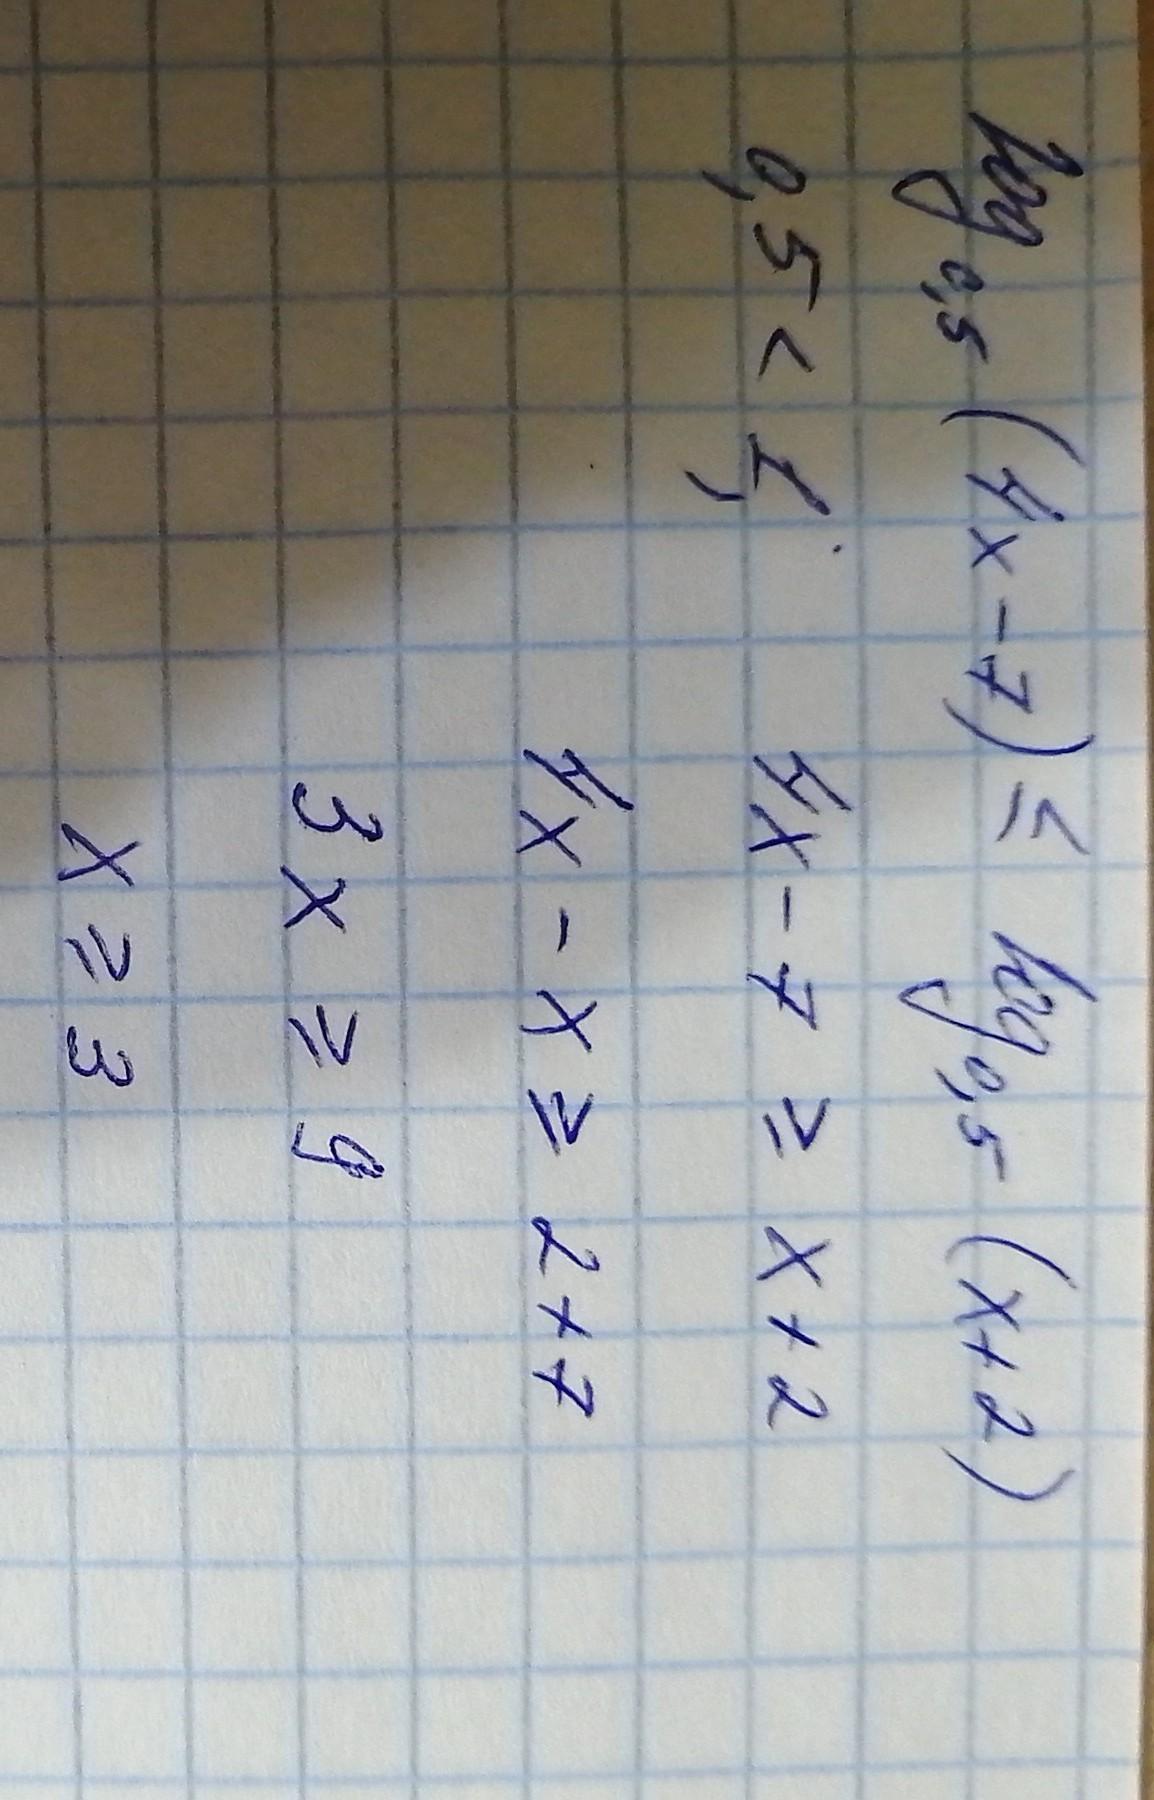 log 0,5 (4x-7) ≤ log 0,5 (x+2)
0,5 < 1, 4x-7 ≥ x+2
4x-x ≥ 2+7
3x ≥ 9
x ≥ 3